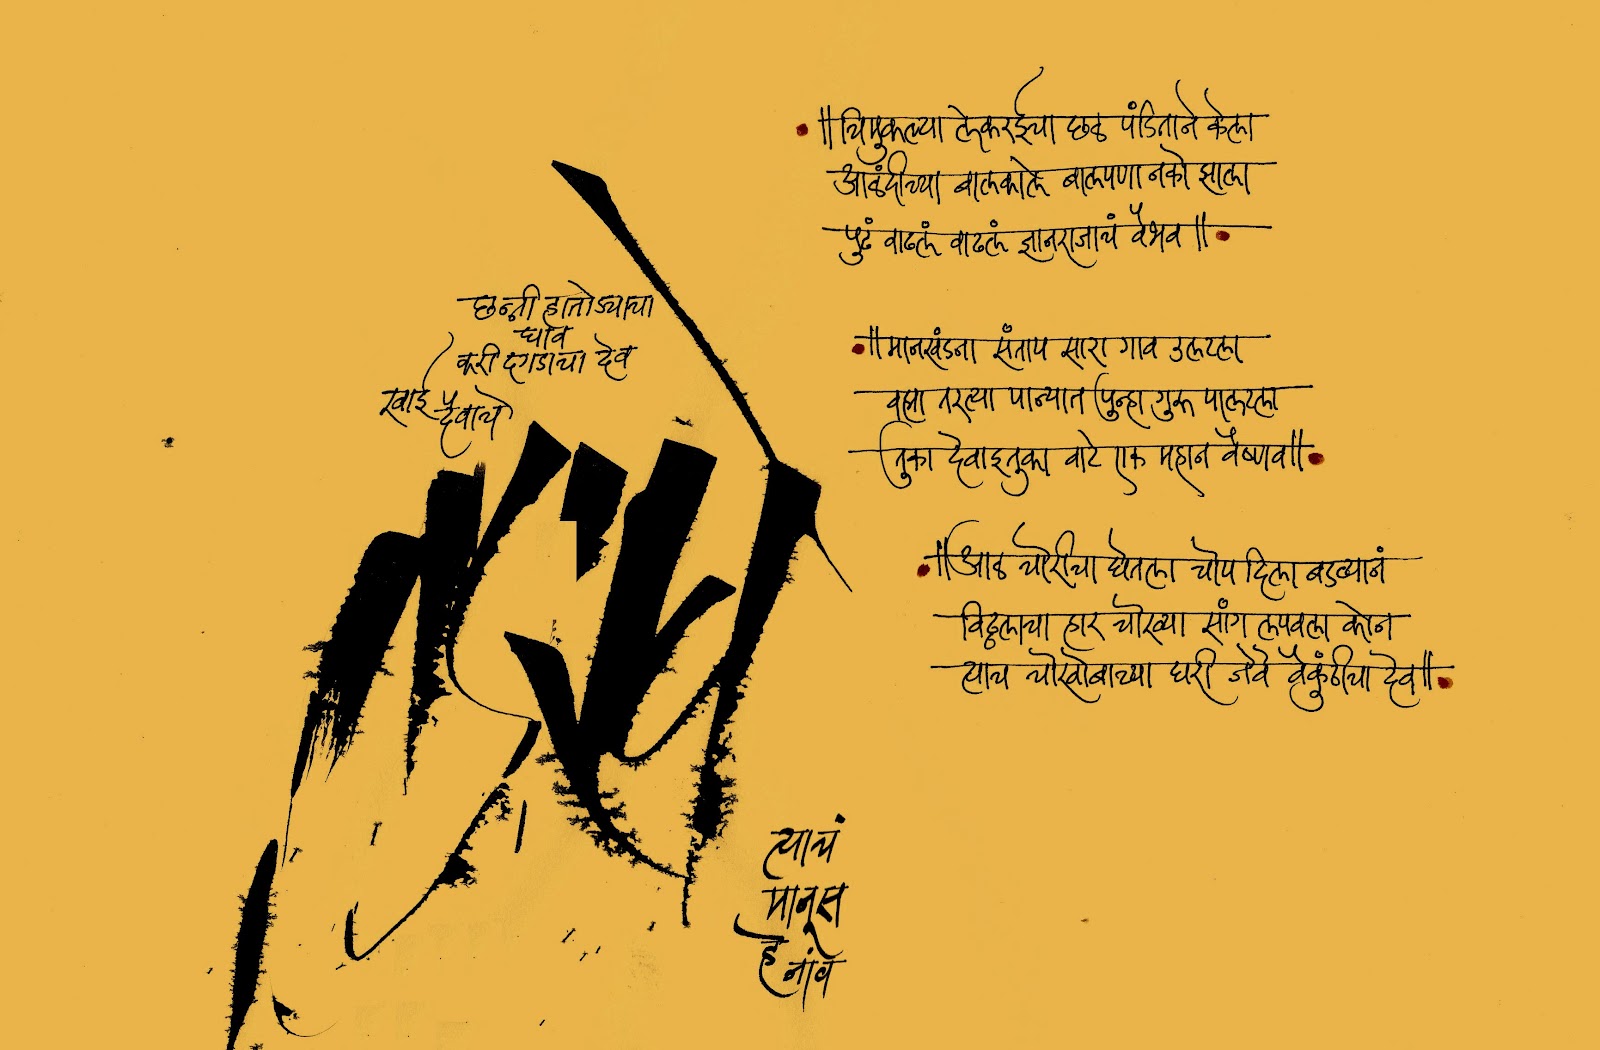 छन्नी हातोड्याचा
घाव
करी दगडाचा देव
खाई दैवाचे
घाव
त्याचं
माणूस
हे नांव
॥चिमुकल्या लेकरईचा छळ पंडिताने केला
आळंदीच्या बालकाले बालपणा नको झाला
पुढं वाढलं वाढलं ज्ञानराजाचं वैभव॥
॥मानखंडना संताप सारा गाव उलटला
वह्या तरत्या पान्यात पुन्हा गुरू पालटला
तुका देवाइतुका वाटे एक महान वैष्णव॥
॥आळ चोरीचा घेतला चोप दिला बडव्यानं
विठ्ठलाचा हार चोख्या सांग लपवला कोन
त्याच चोखोबाच्या घरी जेवे वैकुंठीचा देव॥